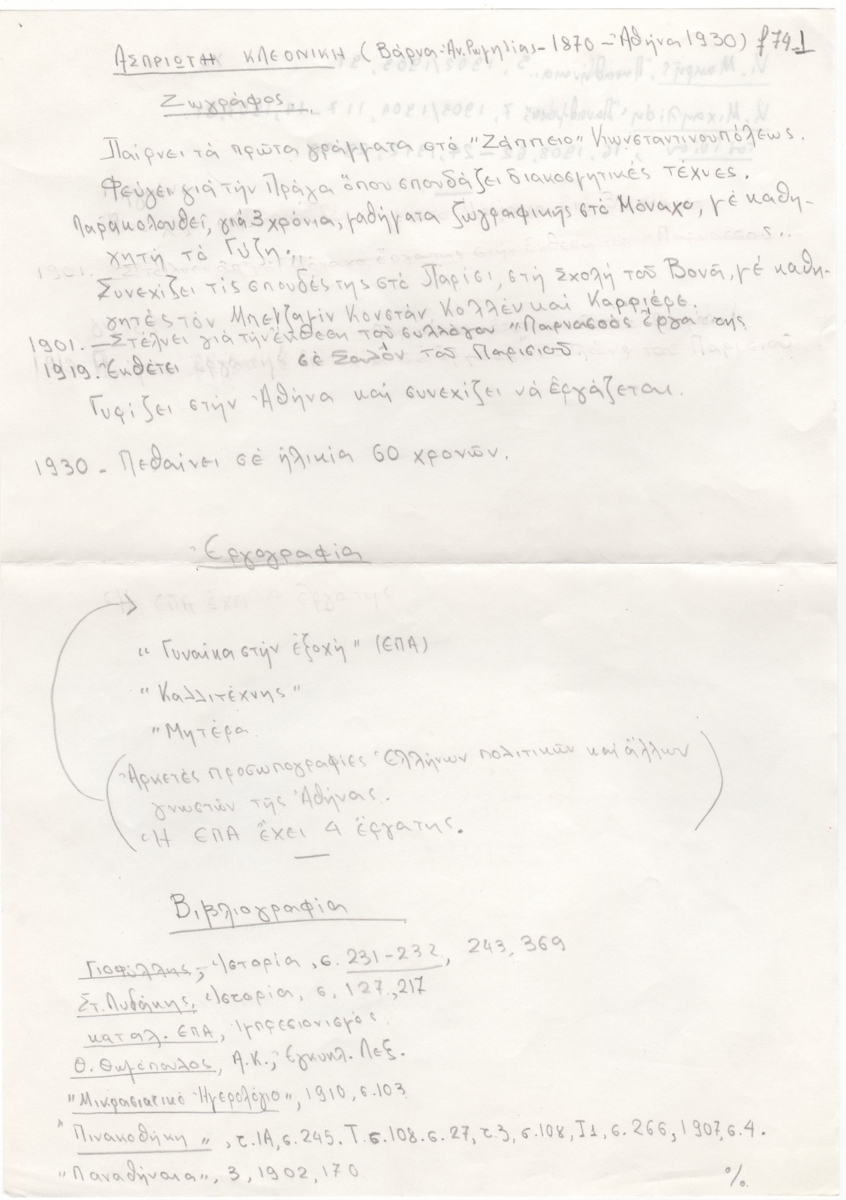 ΑΣΠΡΙΩΤΗ ΚΛΕΟΝΙΚΗ (Βάρνα-Αν.Ρωμηλίας-1870-Ἀθήνα 1930) f74-1
Ζωγράφος.
Παίρνει τὰ πρῶτα γράμματα στὸ "Ζάππειο" Κωνσταντινουπόλεως.
Φεύγει γιὰ τὴν Πράγα ὅπου σπουδάζει διακοσμητικὲς τέχνες.
Παρακολουθεῖ, γιὰ 3 χρόνια, μαθήματα ζωγραφικῆς στὸ Μόναχο, μὲ καθη-
γητὴ τὸ Γύζη.
Συνεχίζει τὶς σπουδές της στὸ Παρίσι, στὴ Σχολὴ τοῦ Βονᾶ, μὲ καθη-
γητὲς τὸν Μπενζαμὶν Κονστὰν, Κολλὲν καὶ Καρριέρε.
1901.- Στέλνει γιὰ τὴν ἔκθεση τοῦ συλλόγου "Παρνασσὸς ἔργα της
1919. Ἐκθέτει σὲ Σαλὸν τοῦ Παρισιοῦ
Γυρίζει στὴν Ἀθήνα καὶ συνεχίζει νὰ ἐργάζεται.
1930 - Πεθαίνει σὲ ἡλικία 60 χρονῶν.
Ἐργογραφία
"Γυναίκα στὴν ἐξοχὴ" (ΕΠΑ)
"Καλλιτέχνης"
"Μητέρα
(Ἀρκετὲς προσωπογραφίες Ἑλλήνων πολιτικῶν καὶ ἄλλων
γνωστῶν τῆς Ἀθήνας.
Ἡ ΕΠΑ ἔχει 4 ἔργα της.)
Βιβλιογραφία
Γιοφύλλης, Ἱστορία, σ. 231-232, 243, 369
Στ. Λυδάκης, Ἱστορία, σ, 127, 217
καταλ. ΕΠΑ, Ἰμπρεσιονισμὸς
Θ. Θωμόπουλος, Α.Κ., Ἐγκυκλ. Λεξ.
"Μικρασιατικὸ Ἡμερολόγιο", 1910, σ.103
"Πινακοθήκη", τ.ΙΑ, σ.245. Τ.ς.108.σ.27, τ.3, σ.108, Ι1, σ.266, 1907, σ.4.
"Παναθήναια", 3, 1902, 170
%.